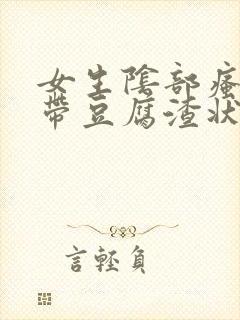 女生陰部瘙
帶豆腐渣狀
言輕負